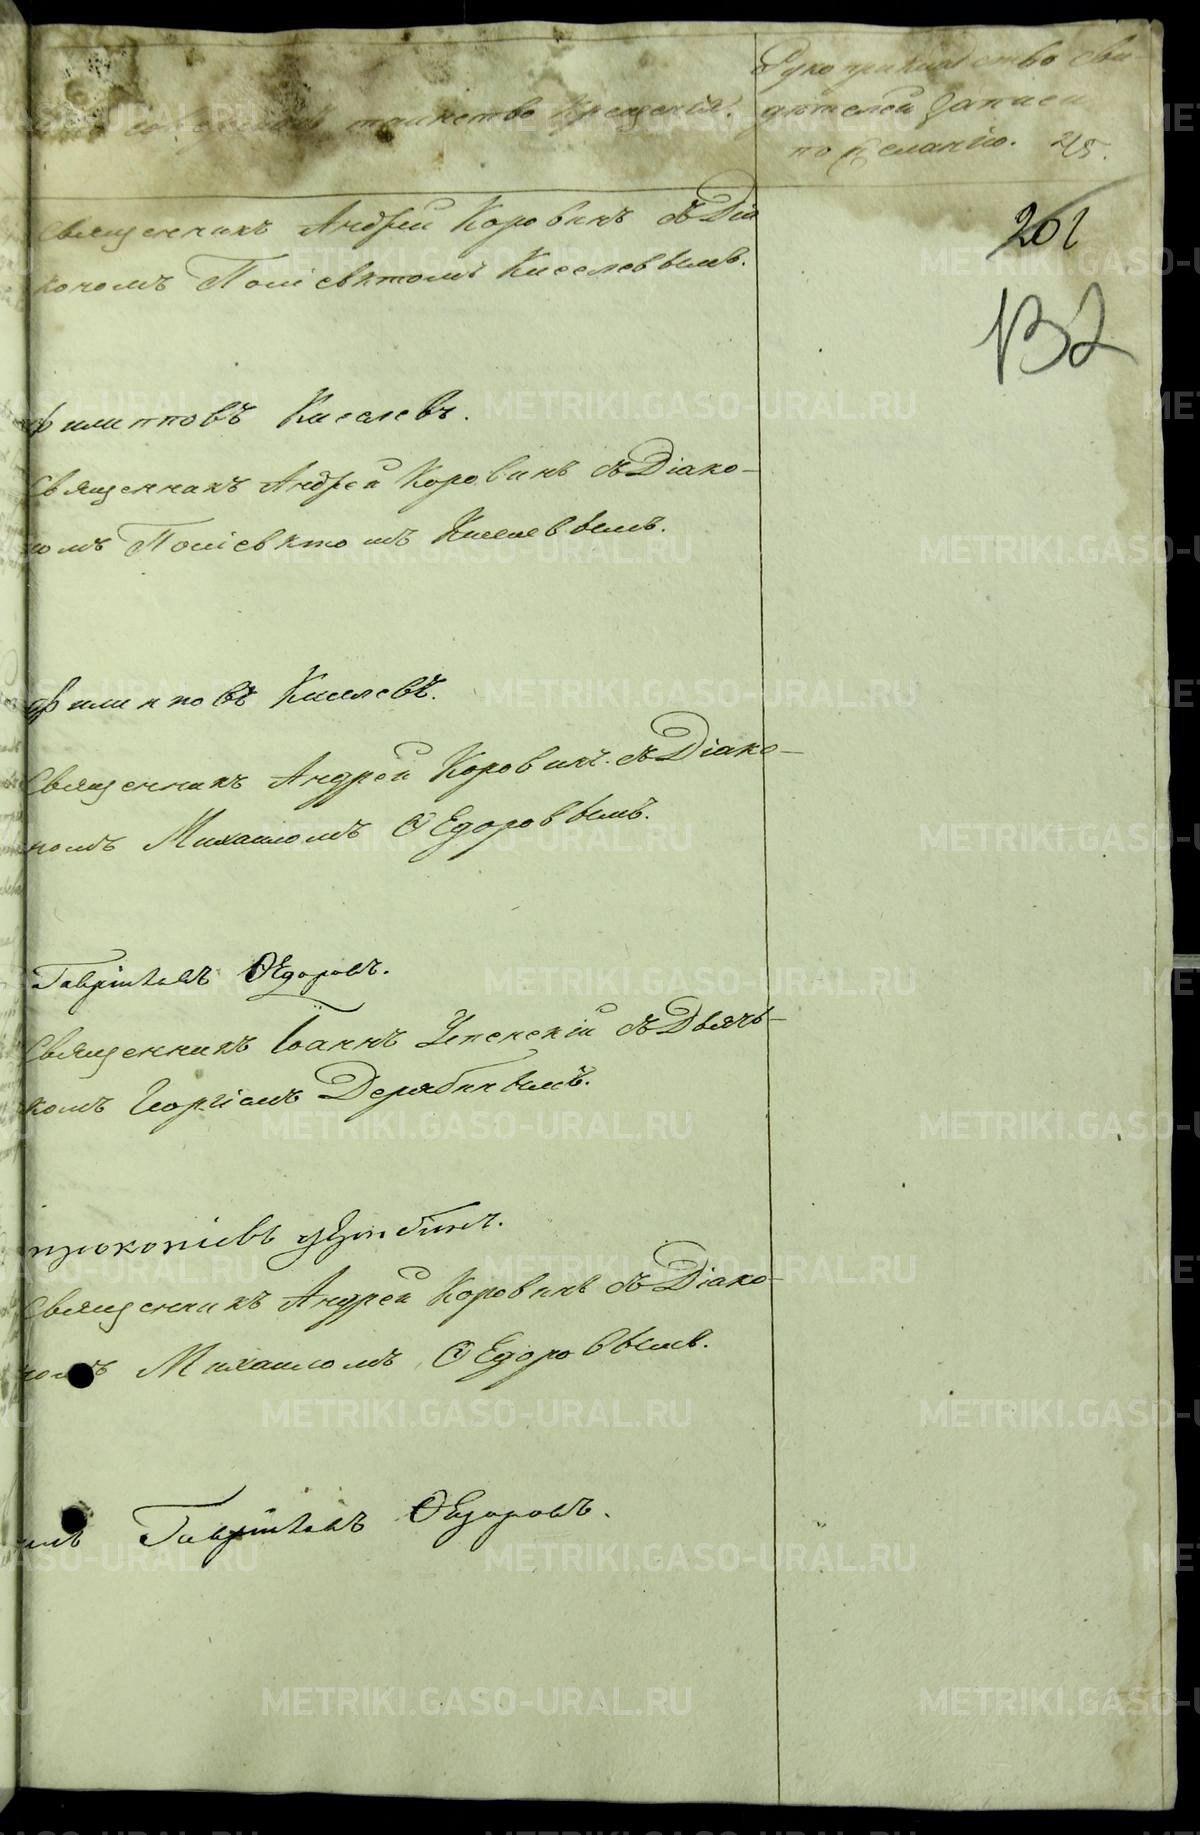 таинство крещенія.
Рукоприкладство сви-
дѣтелей записи
по желанію. 215.
201
132
Священникъ Андрей Коровинъ съ Діа
кономъ Поліевктомъ Киселевымъ.
Филипповъ Киселевъ.
Священникъ Андрей Коровинъ съ Діако-
номъ Поліевктомъ Киселевымъ.
Филипповъ Киселевъ.
Священникъ Андрей Коровинъ съ Діако-
номъ Михаиломъ Ѳедоровымъ.
Гавріиловъ Ѳедоровъ.
Священникъ Іоаннъ Успенскій съ Дьяч-
комъ Георгіемъ Дерябинымъ.
Прокопіевъ
Священникъ Андрей Коровинъ съ Діако-
номъ Михаиломъ Ѳедоровымъ.
Гавріиловъ Ѳедоровъ.
METRIKI.GASO-URAL.RU